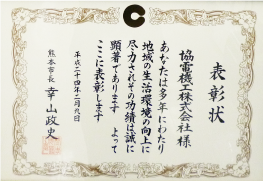 表彰状
協電機工株式会社 様
あなたは多年にわたり
地域の生活環境の向上に
尽力されその功績は誠に
顕著であります よって
ここに表彰します
平成二十四年二月九日
熊本市長 幸山政史